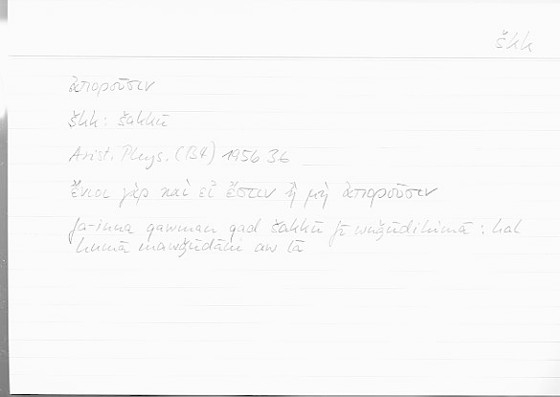 škk
ἀποροῦσιν
škk: šakkū
Arist. Phys. (B4) 195b 36
ἔνιοι γὰρ καὶ εἰ ἔστιν ἢ μὴ ἀποροῦσιν
fa-inna qawman qad šakkū fī wuǧūdihimā : hal
humā mawǧūdāni aw lā